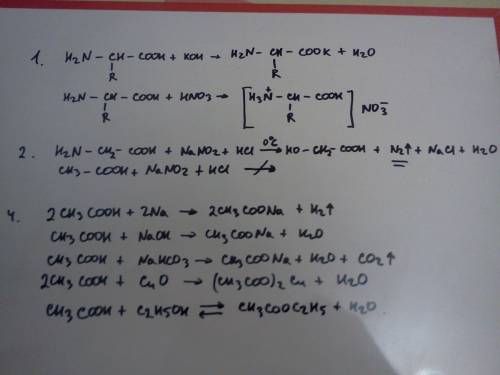 1. H2N - CH - COOH + KOH → H2N - CH - COOK + H2O
R R
H2N - CH - COOH + HNO3 → [H3N⁺ - CH - COOH] NO3⁻
R R
2. H2N - CH2 - COOH + NaNO2 + HCl 0°C → HO - CH2 - COOH + N2↑ + NaCl + H2O
CH3 - COOH + NaNO2 + HCl ↛
4. 2CH3COOH + 2Na → 2CH3COONa + H2↑
CH3COOH + NaOH → CH3COONa + H2O
CH3COOH + NaHCO3 → CH3COONa + H2O + CO2↑
2CH3COOH + CuO → (CH3COO)2Cu + H2O
CH3COOH + C2H5OH ⇄ CH3COOC2H5 + H2O